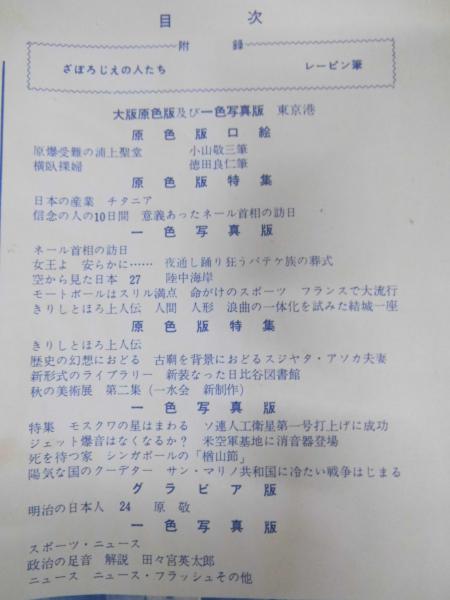 目次
附録
ざぽろじえの人たち　レーピン筆
大版原色版及び一色写真版　東京港
原色版口絵
原爆受難の浦上聖堂　小山敬三筆
横臥裸婦　徳田良仁筆
原色版特集
日本の産業　チタニア
信念の人の10日間　意義あったネール首相の訪日
一色写真版
ネール首相の訪日
女王よ　安らかに……　夜通し踊り狂うバテケ族の葬式
空から見た日本　27　陸中海岸
モートボールはスリル満点　命がけのスポーツ　フランスで大流行
きりしとほろ上人伝　人間　人形　浪曲の一体化を試みた結城一座
原色版特集
きりしとほろ上人伝
歴史の幻想におどる　古廟を背景におどるスジヤタ・アソカ夫妻
新形式のライブラリー　新装なった日比谷図書館
秋の美術展　第二集（一水会　新制作）
一色写真版
特集　モスクワの星はまわる　ソ連人工衛星第一号打上げに成功
ジェット爆音はなくなるか？　米空軍基地に消音器登場
死を待つ家　シンガポールの「楢山節」
陽気な国のクーデター　サン・マリノ共和国に冷たい戦争はじまる
グラビア版
明治の日本人　24　原　敬
一色写真版
スポーツ・ニュース
政治の足音　解説　田々宮英太郎
ニュース　ニュース・フラッシュその他